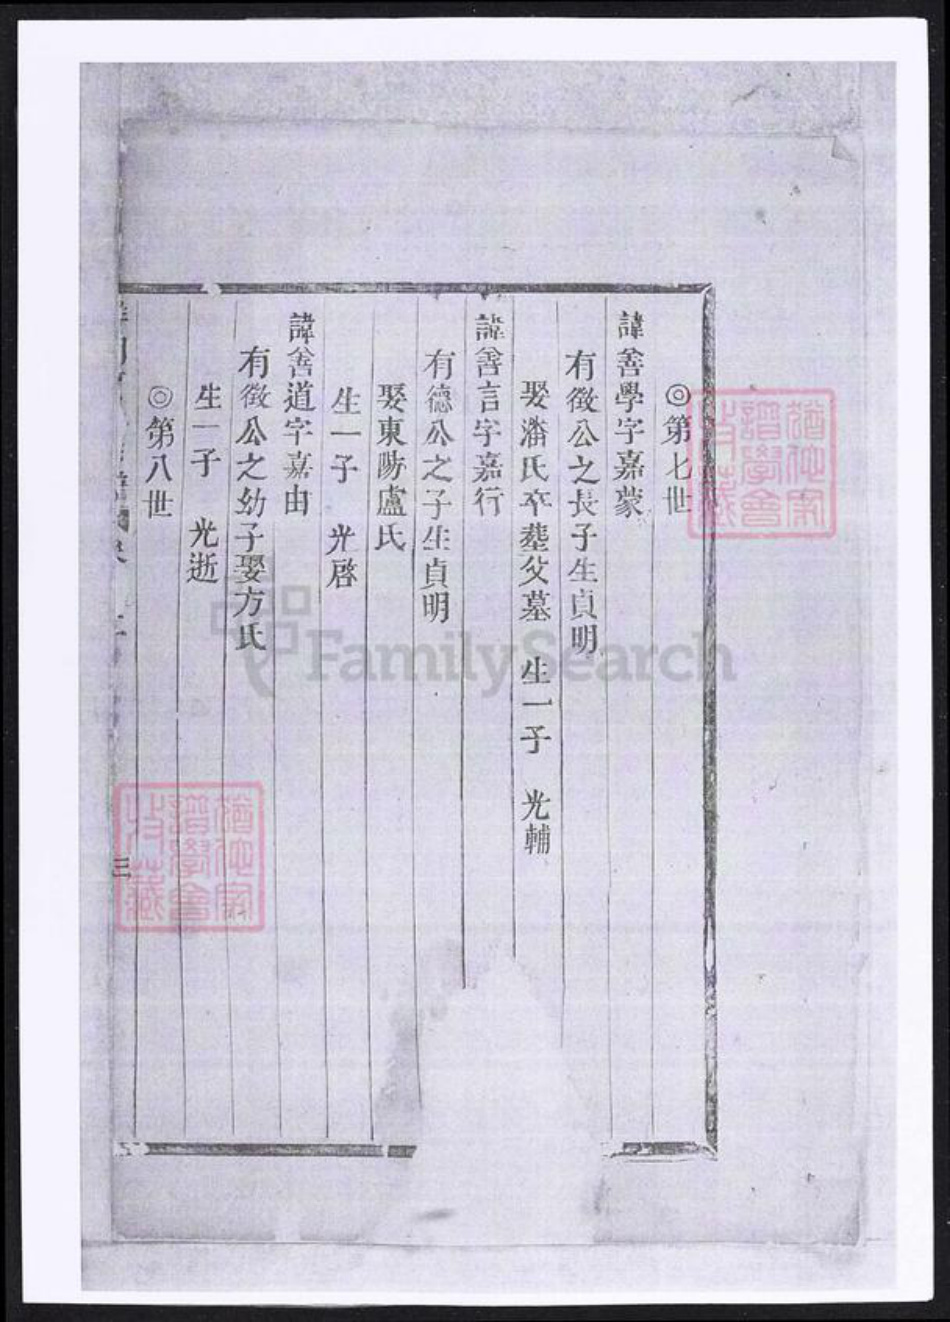 ◎第七世
諱善學字嘉蒙
有徵公之長子生貞明
娶潘氏卒塟父墓 生一子 光輔
諱善言字嘉行
有德公之子生貞明
娶東陽盧氏
生一子 光啓
諱善道字嘉由
有徵公之幼子娶方氏
生一子 光逝
◎第八世
三
FamilySearch